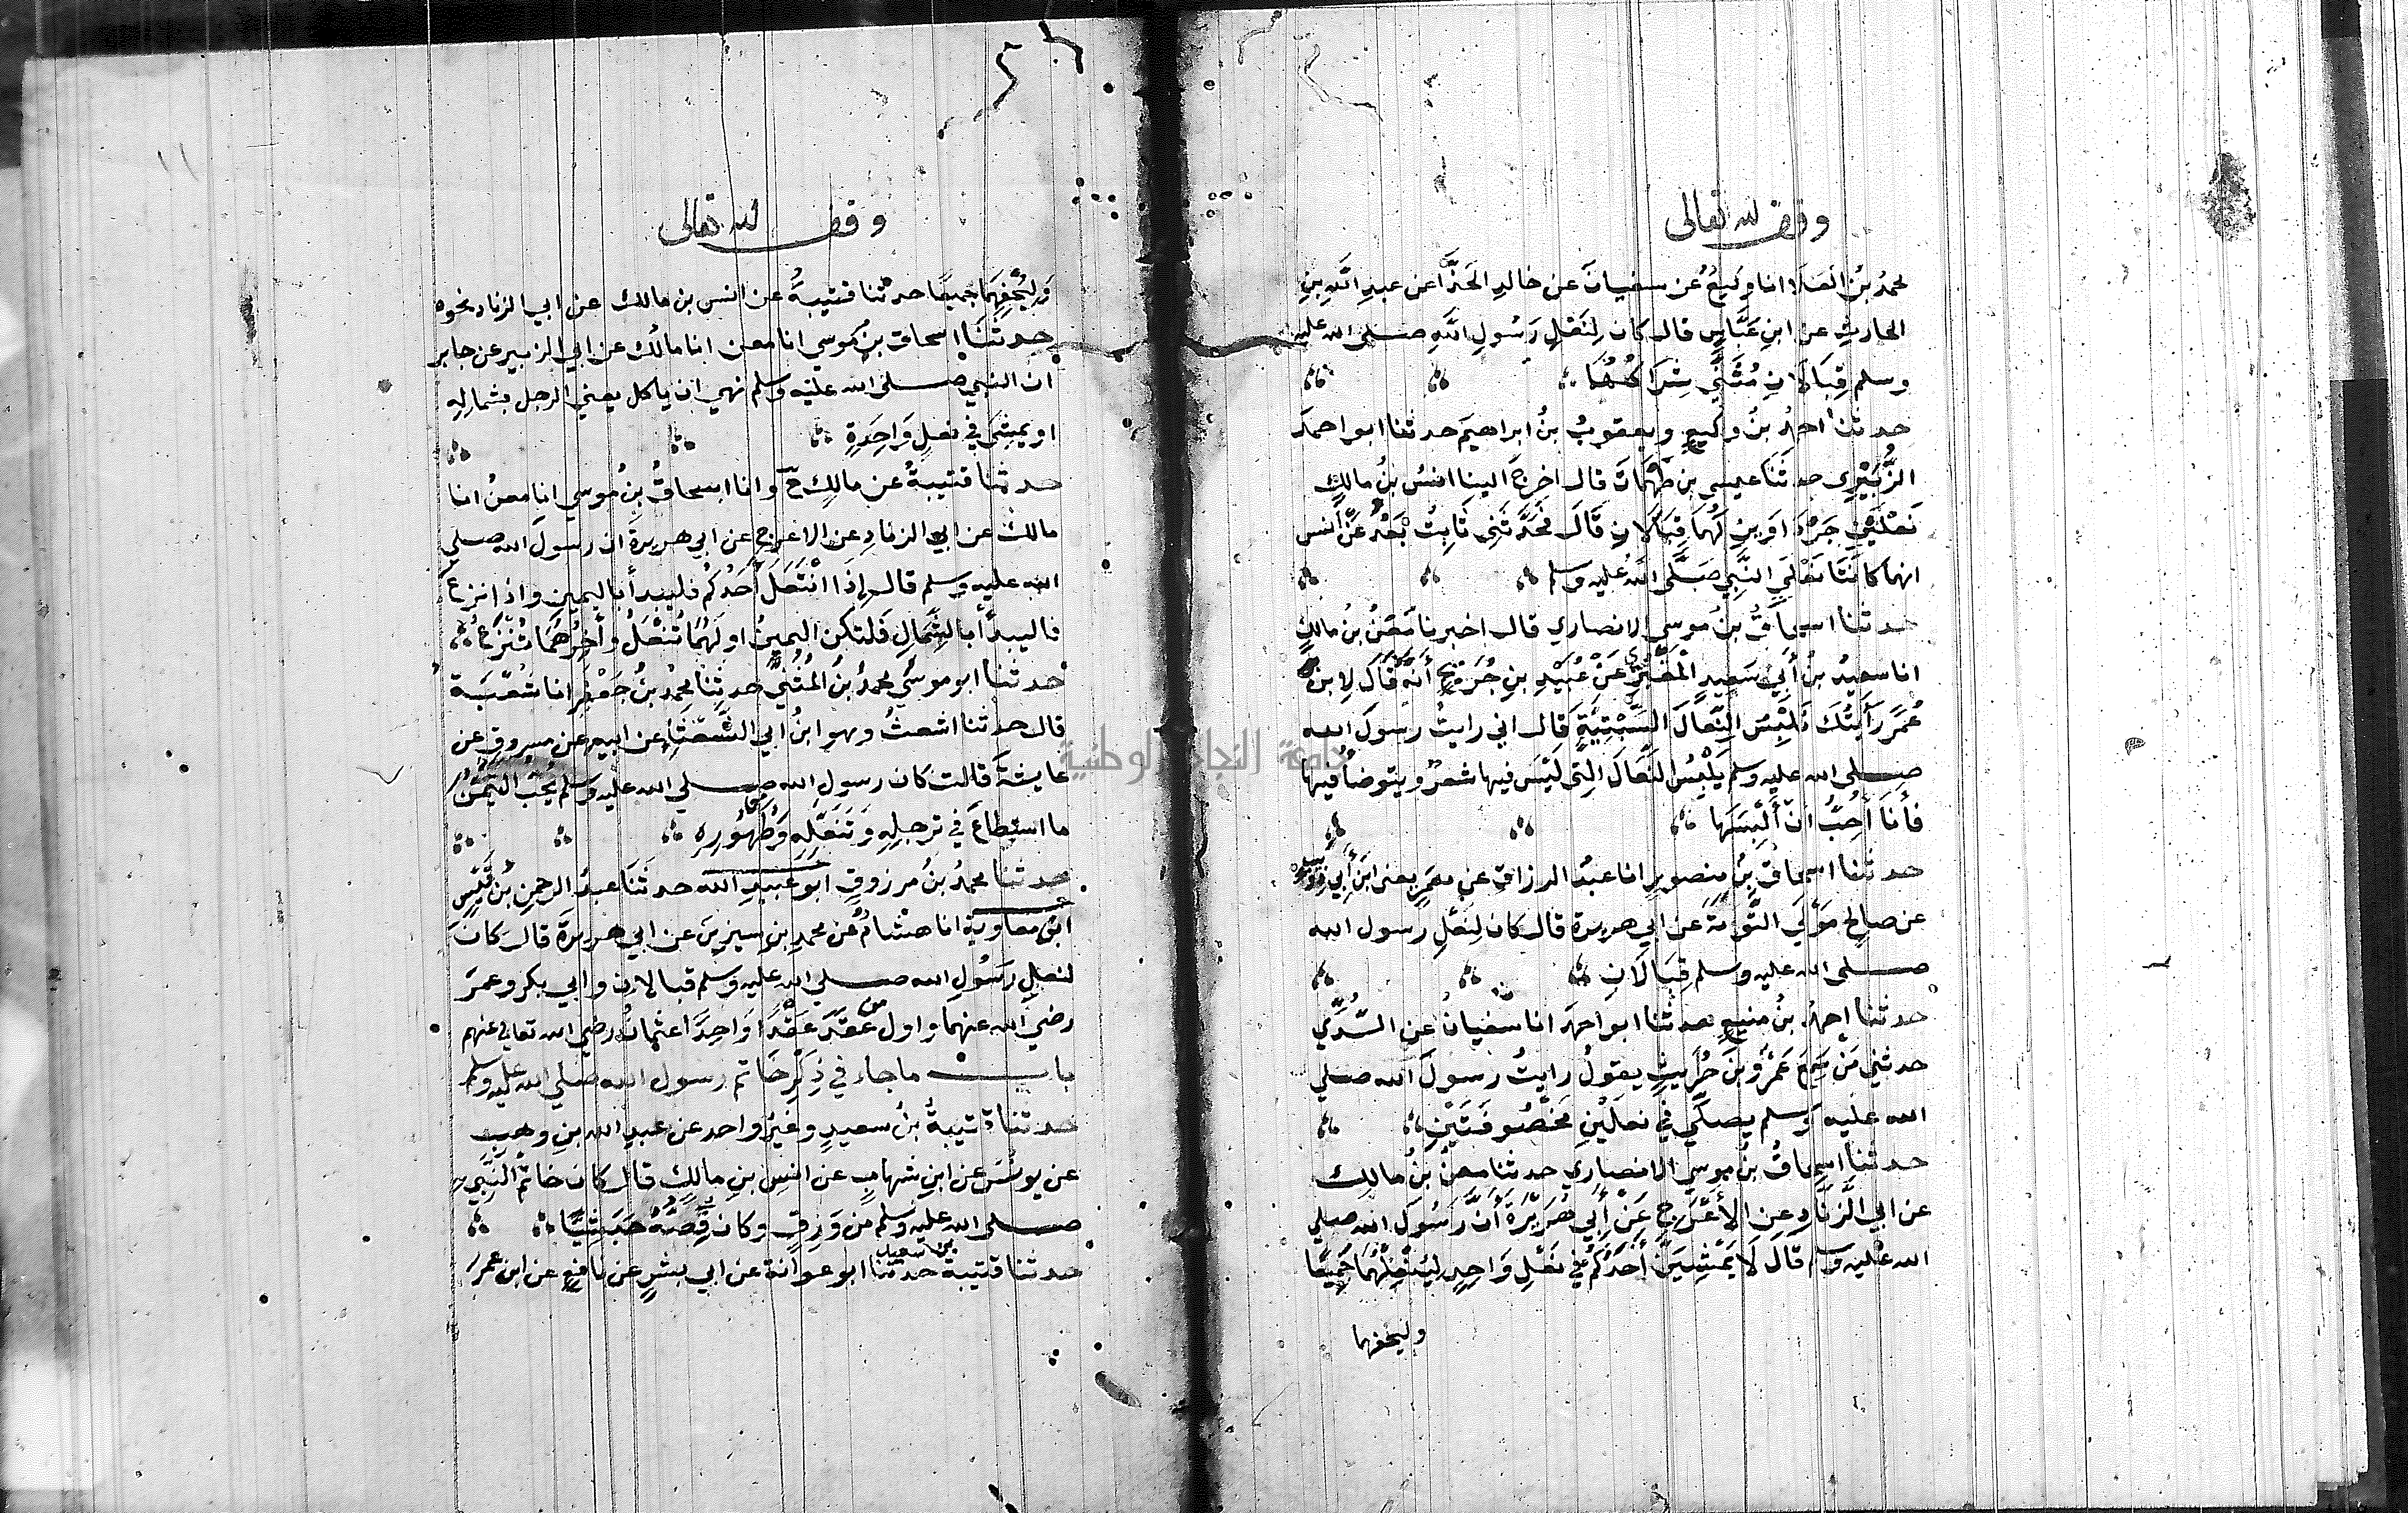 وقف لله تعالى
محمدُ بنُ العَلَا انا وَكيعٌ عن سفيانَ عن خالدٍ الحَذَّا عن عبدِ اللَّهِ بنِ
الحارثِ عن ابنِ عَبَّاسٍ قال كان لِنَعْلِ رَسُولِ اللَّهِ صلى الله عليه
وسلم قِبَالانِ مُثَنَّى شِرَاكُهُمَا
حدثنا احمدُ بنُ وكيعٍ ويعقوبُ بنُ ابراهيمَ حدثنا ابو احمدَ
الزُّبَيْرِى حدثَنَا عيسى بن طَهْمَانَ قال اخرجَ الينا انسُ بنُ مالكٍ
نَعْلَيْنِ جَرْدَاوَينِ لَهُمَا قِبَالَانِ قَالَ فَحَدَّثَنِي ثَابِتٌ بَعْدُ عَنْ أنس
انهما كانَتَا نَعْلَيِ النَّبِيِ صَلَّى اللَّهُ عليه وسلم
حدثنا اسحاقُ بنُ مُوسَى الانصاري قال اخبرنا مَعْنُ بنُ مالكٍ
انا سعيدُ بنُ أَبِي سَعِيدٍ المَقْبُرِيِّ عَنْ عُبَيْدِ بنِ جُرَيْجٍ أَنَّهُ قَالَ لِابنِ
عُمَرَ رَأَيْتُكَ تَلْبَسُ النِّعَالَ السِّبْتِيَّةَ قَالَ اني رايتُ رسولَ الله
صلى الله عليه وسلم يَلْبَسُ النِّعَالَ الِتي لَيْسَ فيها شعرٌ ويتوضأُ فيها
فأنَا أُحِبُّ أَنْ أَلْبَسَها
حدثنا اسحاقُ بنُ منصورٍ انا عبدُ الرزاقِ عن معمَرٍ يعنى ابنَ أَبِي
عن صالحٍ مَوْلَي التَّوْمَةَ عن ابي هريرة قال كان لِنَعْلِ رسول الله
صلى الله عليه وسلم قِبَالَانِ
حدثنا احمدُ بنُ منيعٍ حدثنا ابو احمدَ انا سفيانُ عن السُّدِّي
حدثني مَنْ سَمِعَ عَمْرَو بنَ حُرَيثٍ يقولُ رايتُ رسولَ الله صلي
الله عليه وسلم يصلّي في نعلَيْنِ مَخْصُوفَتَيْنِ
حدثنا اسحاقُ بنُ موسى الانصاري حدثنا معنُ بنُ مالك
عن ابي الزِّنادِ عن الأَعْرَجِ عَنْ أَبِي هُرَيْرَةَ أَنَّ رَسُولَ الله صلي
الله عليه وسلم قال لَا يَمْشِيَنَّ أَحَدُكُمْ في نَعْلٍ وَاحِدٍ لِيُنْعِلْهُمَا جَمِيعًا
وليحفهما
١١
وقف لله تعالى
وَلِيُحْفِهِمَا جميعًا حدثنا قتيبةُ عن انس بن مالك عن ابي الزناد نحوه
حدثنَا اسحاق بنُ مُوسي انا معن انا مالك عن ابي الزبير عن جابر
ان النبي صلى الله عليه وسلم نهي ان ياكل يعني الرجل بشمالِهِ
او يمشِىَ في نعلٍ وَاحِدَةٍ
حدثنا قتيبةُ عن مالكٍ ح وانا اسحاقُ بنُ مُوسي انا معنُ انا
مالك عن ابي الزنادِ عن الاعرجِ عن ابي هريرةَ ان رسولَ الله صلي
الله عليه وسلم قال إِذَا انْتَعَلَ أَحَدُكُم فليبدأ باليمين واذا نزعَ
فاليبدأ بالشِّمالِ فَلتكن اليمينُ اولَهُمَا تُنْعَلُ وآخِرَهُمَا تُنْزَعُ
حدثنا ابو موسَي محمدُ بنُ المُثَنَّي حدثنا محمدُ بنُ جَعْفَرٍ انا شُعْبَة
قال حدثنا اشعثُ وهو ابنُ ابي الشَّعْثَاءِ عن ابيه عن مسروقٍ عن
عايشةَ قالت كان رسول الله صلى الله عليه وسلم يُحِبُّ التيمُّنَ
ما استطاعَ في ترجلِهِ وَتَنَعُّلِهِ وَطُهُورِهِ
حدثنا محمدُ بنُ مرزوقٍ ابو عُبيدِ الله حدثَنَا عبدُ الرحمنِ بنُ قَيْسٍ
ابو معاويةَ انا هشامُ عن محمدِ بنِ سيرينَ عن ابي هريرةَ قال كانَ
لنعلِ رَسُولِ الله صلي الله عليه وسلم قبالان وابي بكر وعمرَ
رضيَ الله عنهما واول من عَقَدَ عَقْدًا وَاحِدًا عثمانُ رضي الله تعالي عنهم
باب ما جاء في ذِكْرِ خَاتم رسول الله صلي الله عليه وسلم
حدثنا قتيبةُ بنُ سعيدٍ وغيرُ واحد عن عبدِ الله بنِ وهبٍ
عن يونُسَ عن ابنِ شهابٍ عن انسِ بنِ مالكٍ قال كان خاتمُ النَّبِيِ
صلى الله عليه وسلم من وَرِقٍ وكان فَصُّهُ حَبَشِيًّا
حدثنا قتيبة بن سعيد حدثنا ابو عوانة عن ابي بشرٍ عن نافعٍ عن ابن عمرَ
جامعة النجاح الوطنية